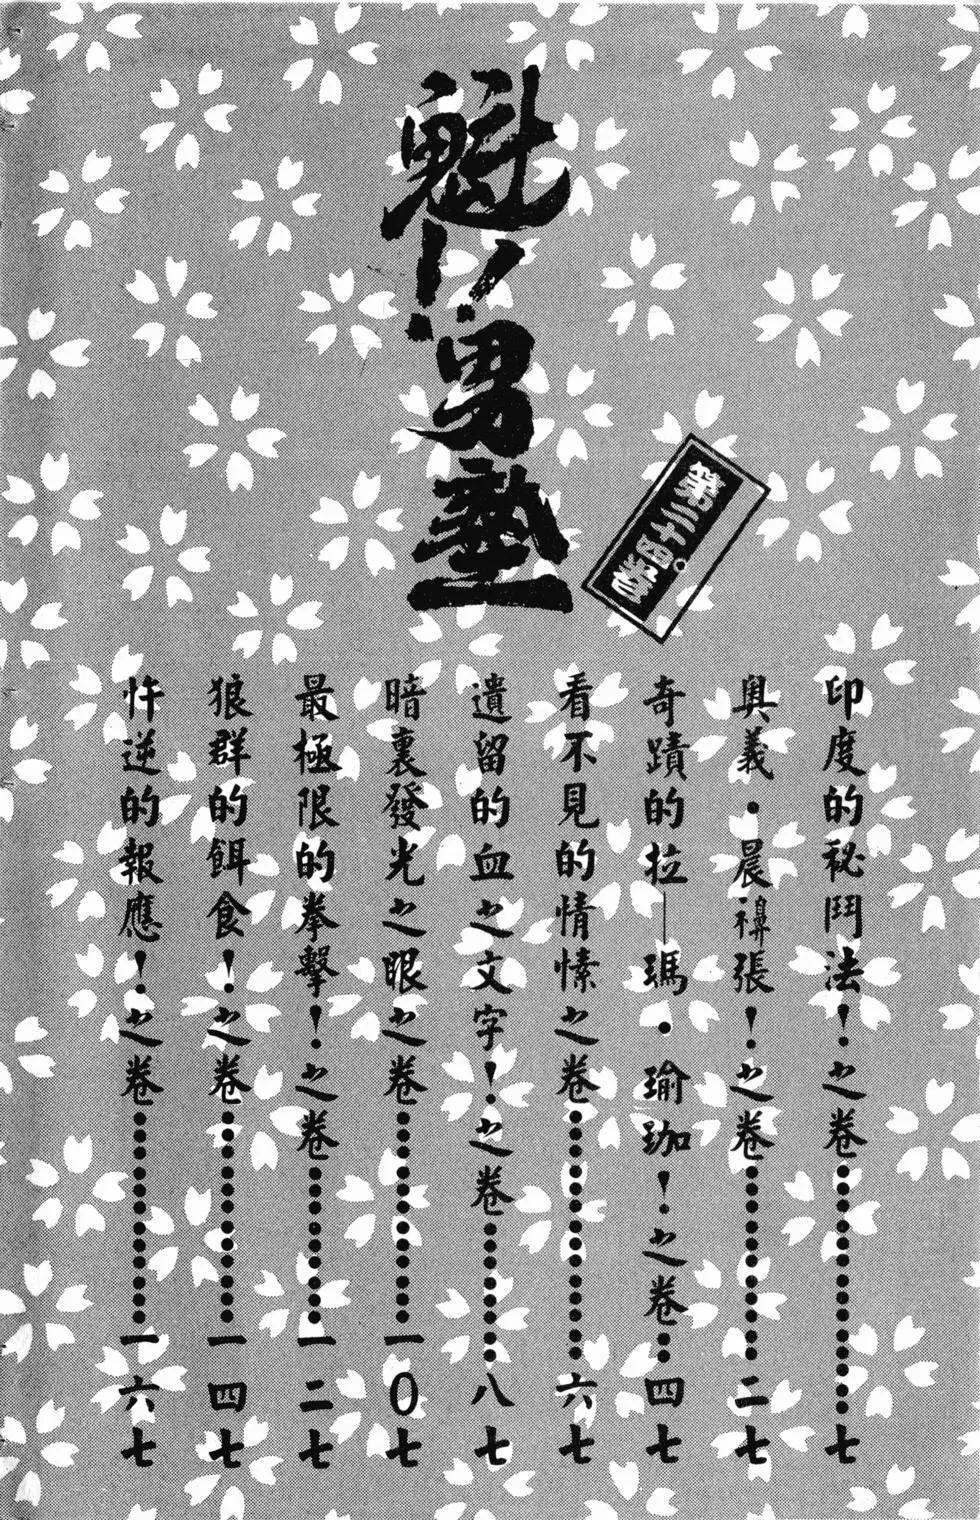 魁!!男塾
第三十四卷
印度的祕鬥法!之卷…………七
奥義・晨禪張!之卷…………二七
奇蹟的拉—瑪・瑜珈!之卷…四七
看不見的情愫之卷…………六七
遺留的血之文字!之卷………八七
暗裏發光之眼之卷…………一0七
最極限的拳擊!之卷…………一二七
狼群的餌食!之卷…………一四七
忤逆的報應!之卷…………一六七